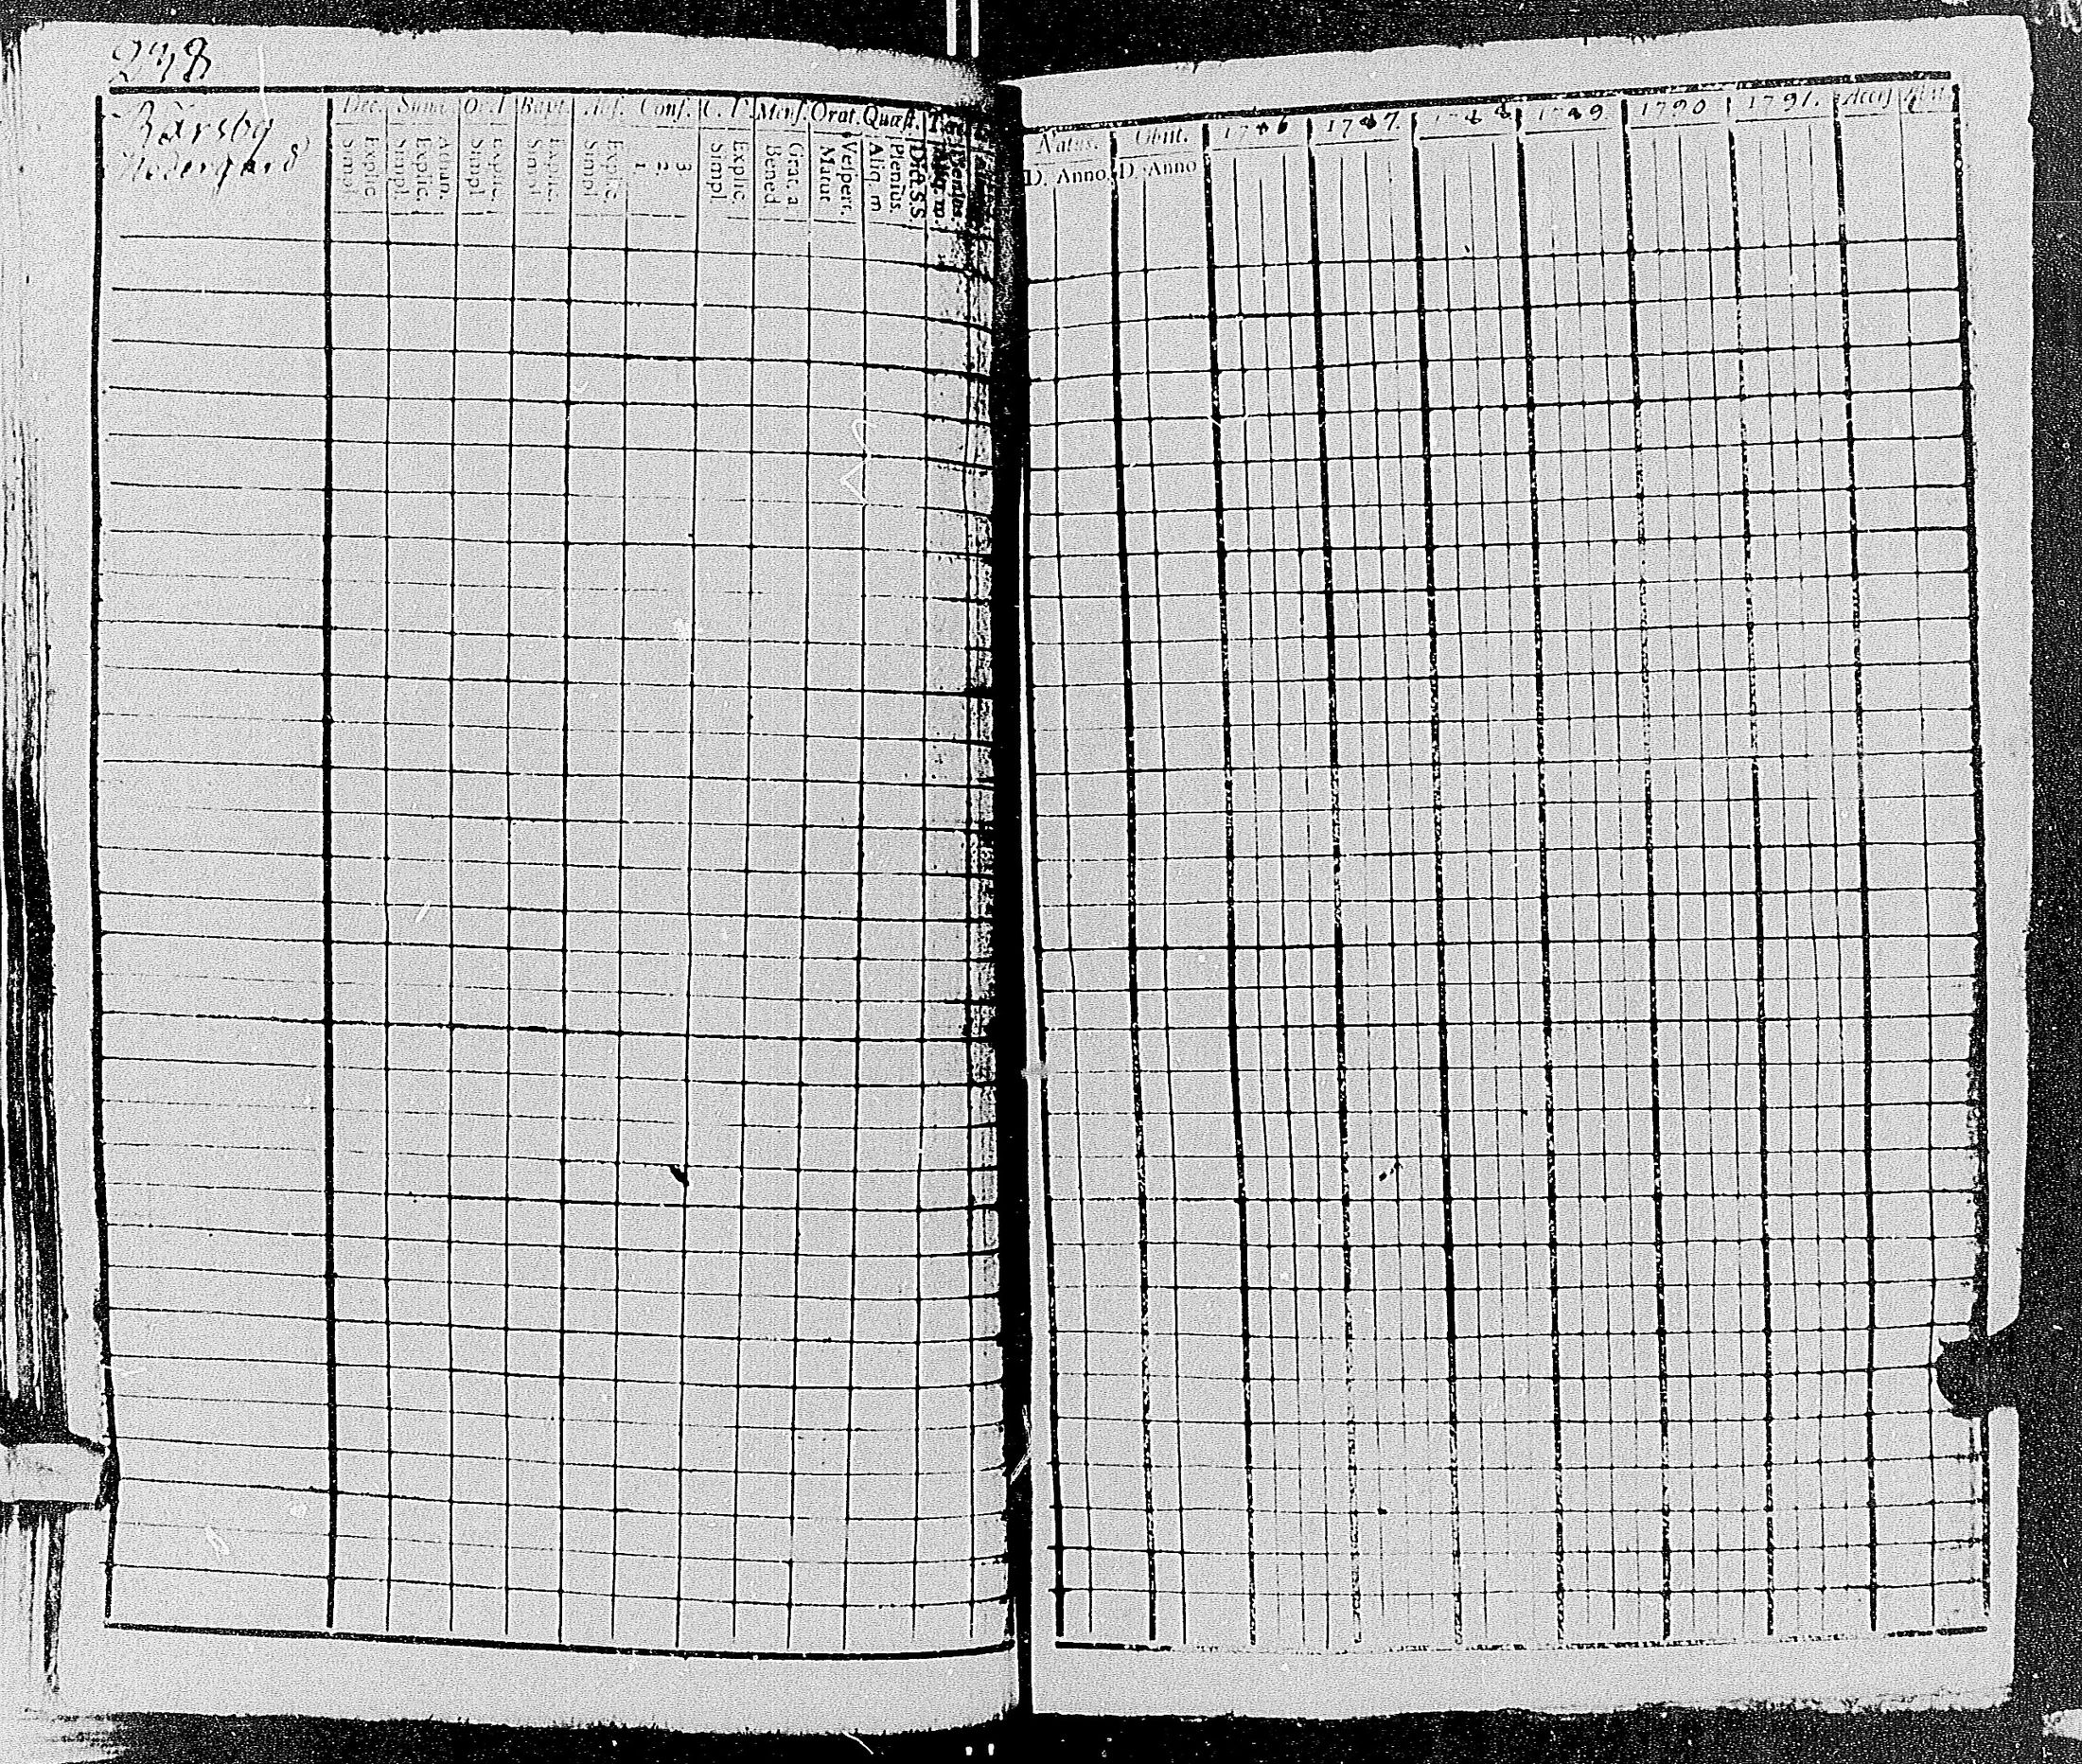 238
Bärsby
Nedergård
Dec. Symb. Or. D Bapt. Abs. Conf. C. D Mens. Orat. Quæst.
Explic. Simpl. Athan. Explic. Simpl. Explic. Simpl. Explic. Simpl. Explic. Simpl. 3 2 1 Explic. Simpl. Grat. a Bened. Vespert. Matut. D. a. S. S. Plenius. Aliq. m
Natus. Obiit. 1786 1787. 1788 1789 1790 1791. Access. Abit.
D. Anno. D. Anno